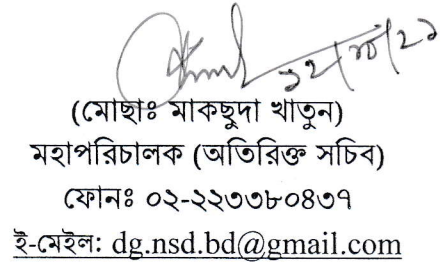 ১২/১০/২১
(মোছাঃ মাকছুদা খাতুন)
মহাপরিচালক (অতিরিক্ত সচিব)
ফোনঃ ০২-২২৩৩৮০৪৩৭
ই-মেইল: dg.nsd.bd@gmail.com